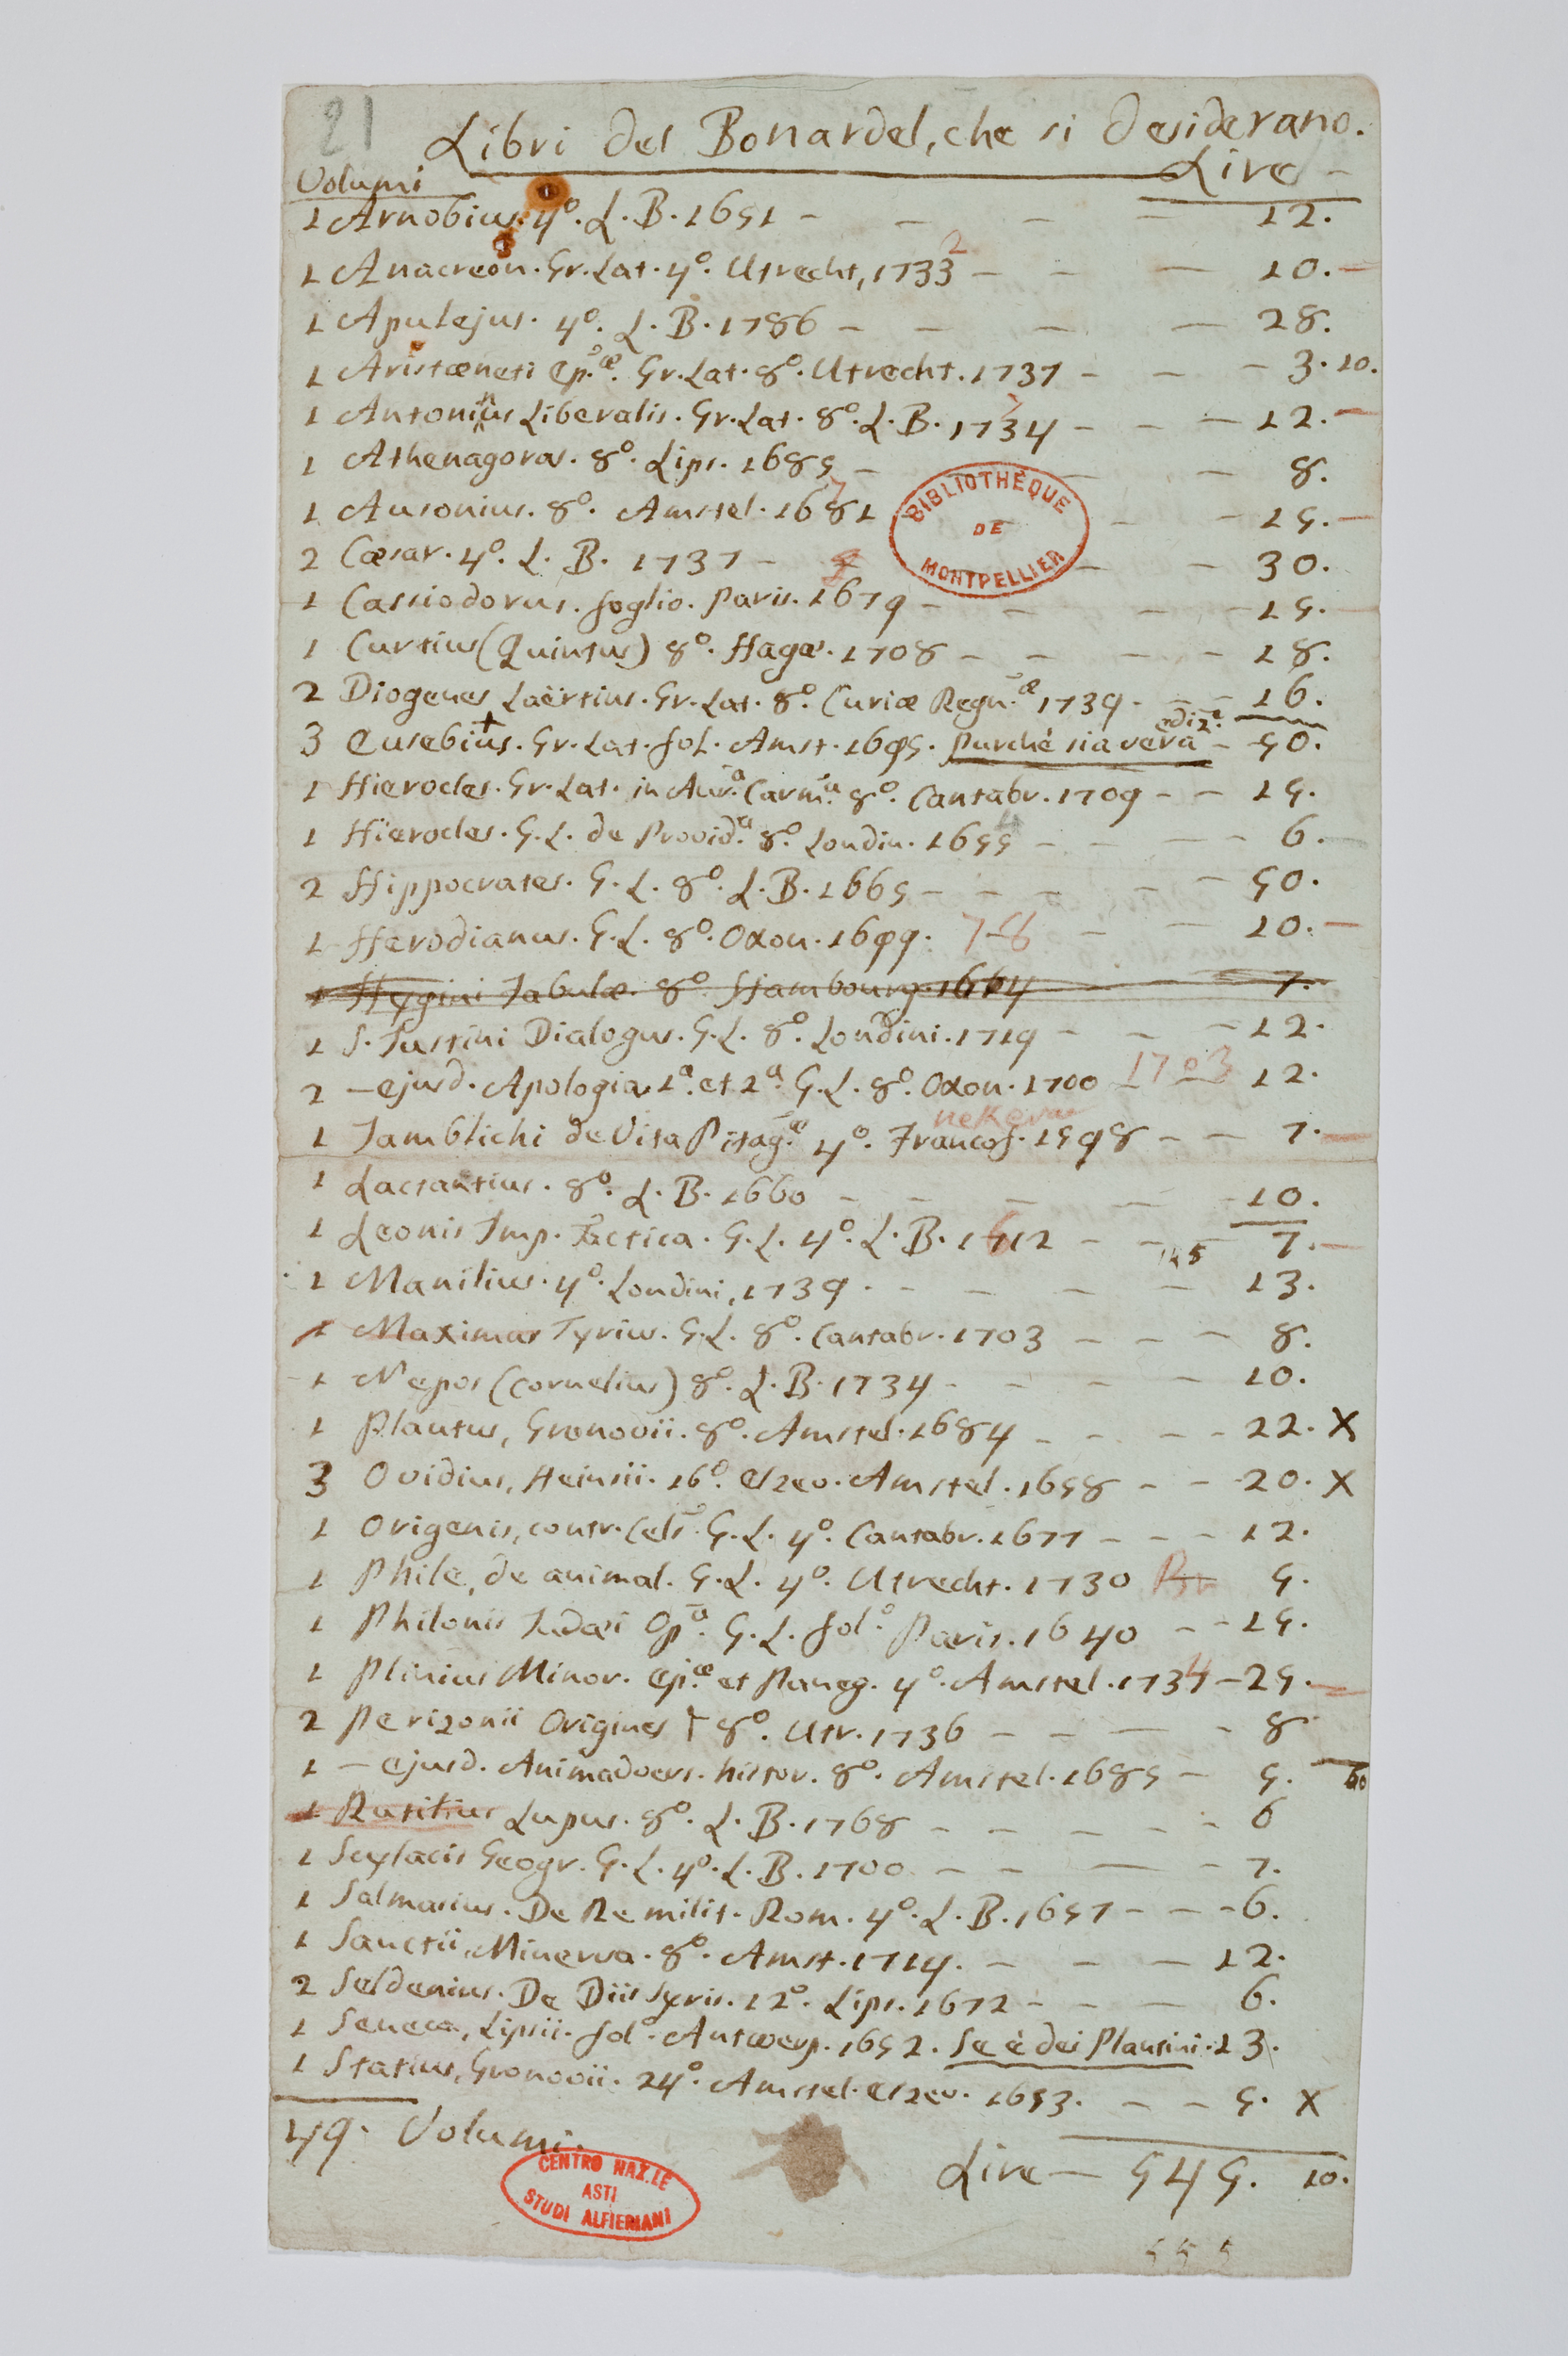 21
Libri del Bonardel, che si desiderano.
Volumi Lire -
1 Arnobius. 4º. L. B. 1651 - - - - 12.
1 Anacreon. Gr. Lat. 4º. Utrecht, 1733 2 - - - 10. -
1 Apulejus. 4º. L. B. 1786 - - - - 28.
1 Aristæneti Ep.æ Gr. Lat. 8º. Utrecht. 1737 - - - 3. 10.
1 Antonius Liberalis. Gr. Lat. 8º. L. B. 1734 - - - 12. -
1 Athenagoras. 8º. Lips. 1685 - - - 8.
1 Ausonius. 8º. Amstel. 1681 7 - - 15. -
2 Cæsar. 4º. L. B. 1737 - - - 30.
1 Cassiodorus. foglio. Paris. 1679 - - - - 15. -
1 Curtius (Quintus) 8º. Hagæ. 1708 - - - - 18.
2 Diogenes Laërtius. Gr. Lat. 8º. Curiæ Regn.æ 1739 - - - 16.
3 Eusebius. + Gr. Lat. fol. Amst. 1695. purchè sia vera ediz.e - 50.
1 Hierocles. Gr. Lat. in Aur.a Carm.a 8º. Cantabr. 1709 - - 15.
1 Hierocles. G. L. de Provid.a 8º. Londin. 1655 - - - - 6. -
2 Hippocrates. G. L. 8º. L. B. 1665 - - - - - 50.
1 Herodianus. G. L. 8º. Oxon. 1699. - - 10. -
1 Hygini Fabulæ. 8º. Hambourg. 1674 7.
1 S. Justini Dialogus. G. L. 8º. Londini. 1719 - - - 12.
2 - ejusd. Apologia 1ª. et 2ª. G. L. 8º. Oxon. 1700 1703 - - 12.
1 Jamblichi de Vita Pitag.æ 4º. Francof. 1598 - - 7. -
1 Lactantius. 8º. L. B. 1660 - - - - - 10.
1 Leonis Imp. Tactica. G. L. 4º. L. B. 1612 - - - 7. -
1 Manilius. 4º. Londini, 1739. - - - - 13.
1 Maximus Tyrius. G. L. 8º. Cantabr. 1703 - - - 8.
1 Nepos (Cornelius) 8º. L. B. 1734 - - - - 10.
1 Plautus, Gronovii. 8º. Amstel. 1684 - - - - 22. X
3 Ovidius, Heinsii. 16º. Elzev. Amstel. 1658 - - 20. X
1 Origenis, contr. Cels. G. L. 4º. Cantabr. 1677 - - - 12.
1 Phile, de animal. G. L. 4º. Utrecht. 1730 5.
1 Philonis Judæi Op.a G. L. fol.º Paris. 1640 - - 15.
1 Plinius Minor. Ep.æ et Paneg. 4º. Amstel. 1734 - 25. -
2 Perizonii Origines 8º. Utr. 1736 - - - - 8
1 - ejusd. Animadvers. histor. 8º. Amstel. 1685 - 5. 60
1 Rutilius Lupus. 8º. L. B. 1768 - - - - - 6
1 Scylacis Geogr. G. L. 4º. L. B. 1700. - - - - 7.
1 Salmasius. De Re milit. Rom. 4º. L. B. 1657 - - - 6.
1 Sanctii, Minerva. 8º. Amst. 1714. - - - 12.
2 Seldenius. De Diis Syris. 12º. Lips. 1672 - - - 6.
1 Seneca, Lipsii. fol.º Antwerp. 1652. Se è dei Plantini. 13.
1 Statius, Gronovii. 24º. Amstel. Elzev. 1653. - - 5. X
49. Volumi.
Lire - 545. 10.
555
BIBLIOTHÈQUE
DE
MONTPELLIER
CENTRO NAZ.LE
ASTI
STUDI ALFIERIANI